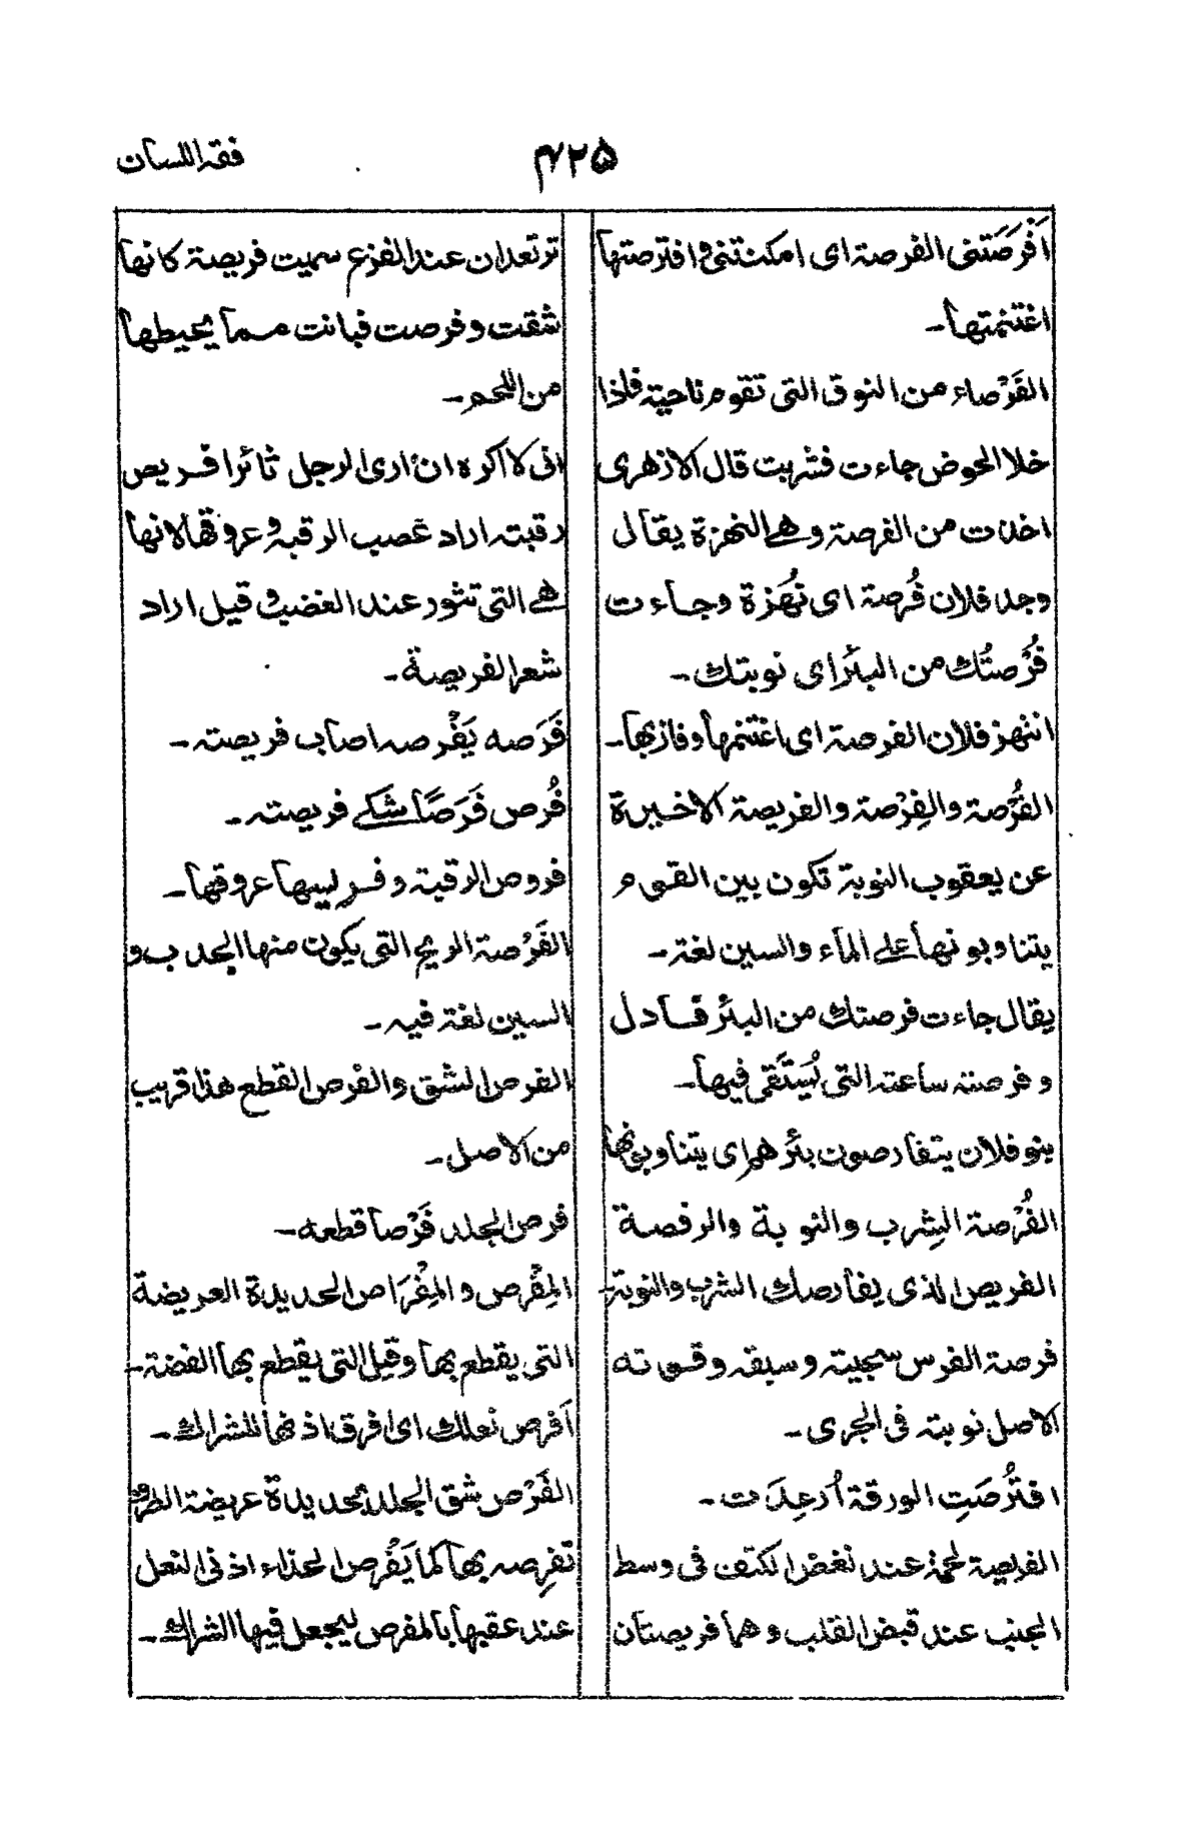 فقه اللسان
۴۲۵
اَفْرَصَتنى الفرصة اى امكنتنى وافترصتها
اغتنمتها۔
الفَرْصاء من النوق التى تقوم ناحية فاذا
خلا الحوض جاءت فشربت قال الازهرى
اخذت من الفرصة وهى النهزة يقال
وجد فلان فُرصة اى نُهزة وجاءت
فُرْصتُك من البئر اى نوبتك۔
انتهز فلان الفرصة اى اغتنمها وفاز بها۔
الفُرْصة والفِرْصة والفريصة الاخيرة
عن يعقوب النوبة تكون بين القوم
يتناوبونها على الماء والسين لغة۔
يقال جاءت فرصتك من البئر
وفرصته ساعته التى يُستَقى فيها۔
بنو فلان يتفارصون بئرهم اى يتناوبونها
الفُرْصة الشِرب والنوبة والرفصة
الفريص الذى يفارصك الشرب والنوبة۔
فرصة الفرس سجيته وسبقه وقوته
الاصل نوبته فى الجرى۔
افتُرُصَتِ الورقة اُرعِدَت۔
الفريصة لحمة عند نغض الكتف فى وسط
الجنب عند قبض القلب وهما فريصتان
ترتعدان عند الفزع سميت فريصة كانها
شقت وفرصت فبانت مما يحيطها
من اللحم۔
انى لا اكره ان ارى الرجل ثائرا فريص
رقبته اراد عصب الرقبة وعروقها لانها
هى التى تثور عند الغضب وقيل اراد
شعر الفريصة۔
فَرَصه يَفْرصه اصاب فريصته۔
فُرص فَرَصًا شكى فريصته۔
فروص الرقبة وفريسها عروقها۔
الفَرْصة الريح التى يكون منها الحدب و
السين لغة فيه۔
الفرص الشق والفرص القطع هذا قريب
من الاصل۔
فرص الجلد فَرْصا قطعه۔
المِفْرص والمِفْرَاص الحديدة العريضة
التى يقطع بها وقيل التى يقطع بها الفضة۔
اَفرص نعلك اى افرق اذنها للشراك۔
الفَرْص شق الجلد بحديدة عريضة الطرف
تفرِصه بها كما يَفْرص الحذاء اذنى النعل
عند عقبها بالمفرص ليجعل فيها الشراك۔